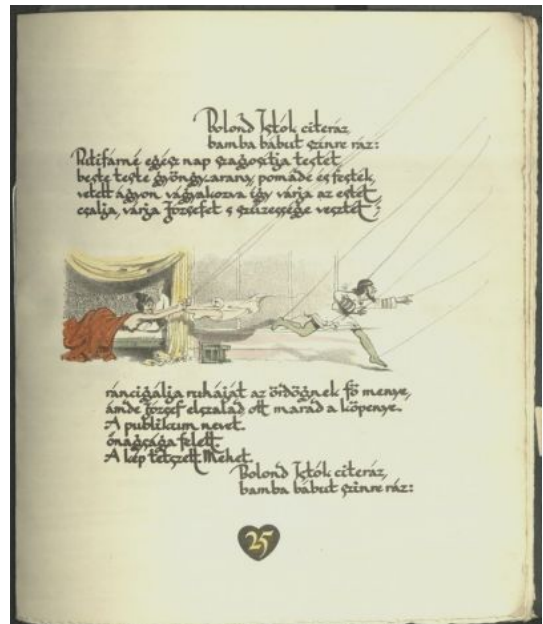 Bolond Istók citeráz,
bamba bábut szinre ráz:
Putifárné egész nap szagositja testét,
beste teste gyöngy-arany, pomádé és festék,
vetett ágyon vágyakozva így várja az estét,
csalja, várja Józsefet s szüzessége vesztét;
ráncigálja ruháját az ördögnek fő menye,
ámde József elszalad ott marad a köpenye.
A publikum nevet.
őnagysága felett.
A kép tetszett
Bolond Istók citeráz,
bamba bábut szinre ráz:
25